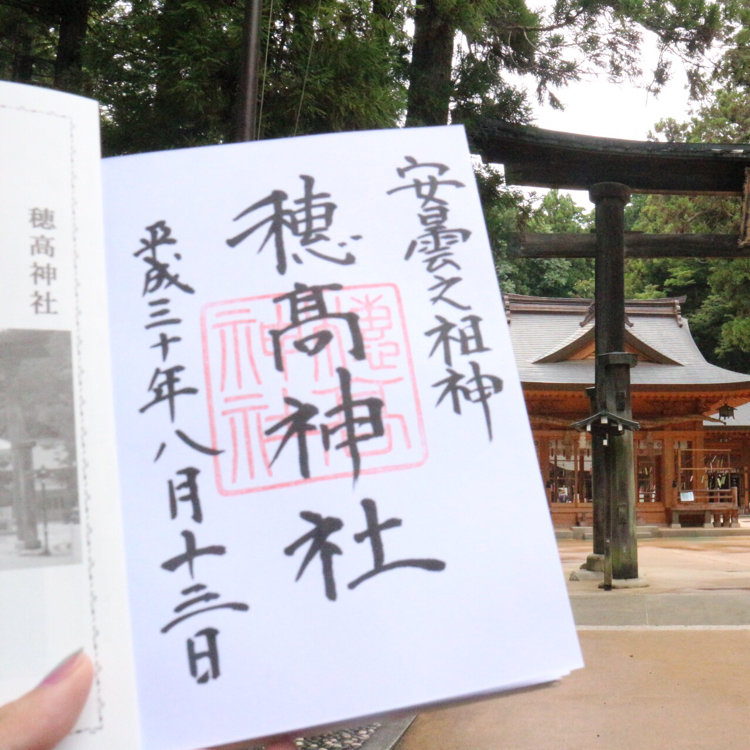 安曇之祖神
穂高神社
平成三十年八月十三日
穂高神社
穂髙神社